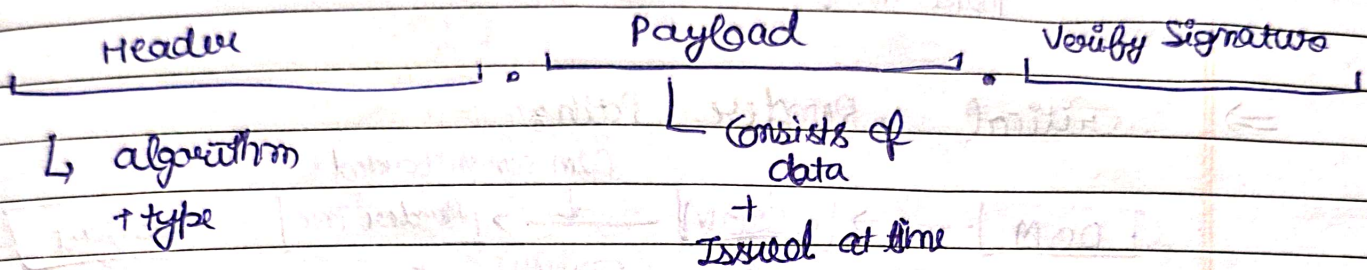 Header . Payload . Verify Signature
↳ algorithm
+ type
Consists of
data
+
Issued at time